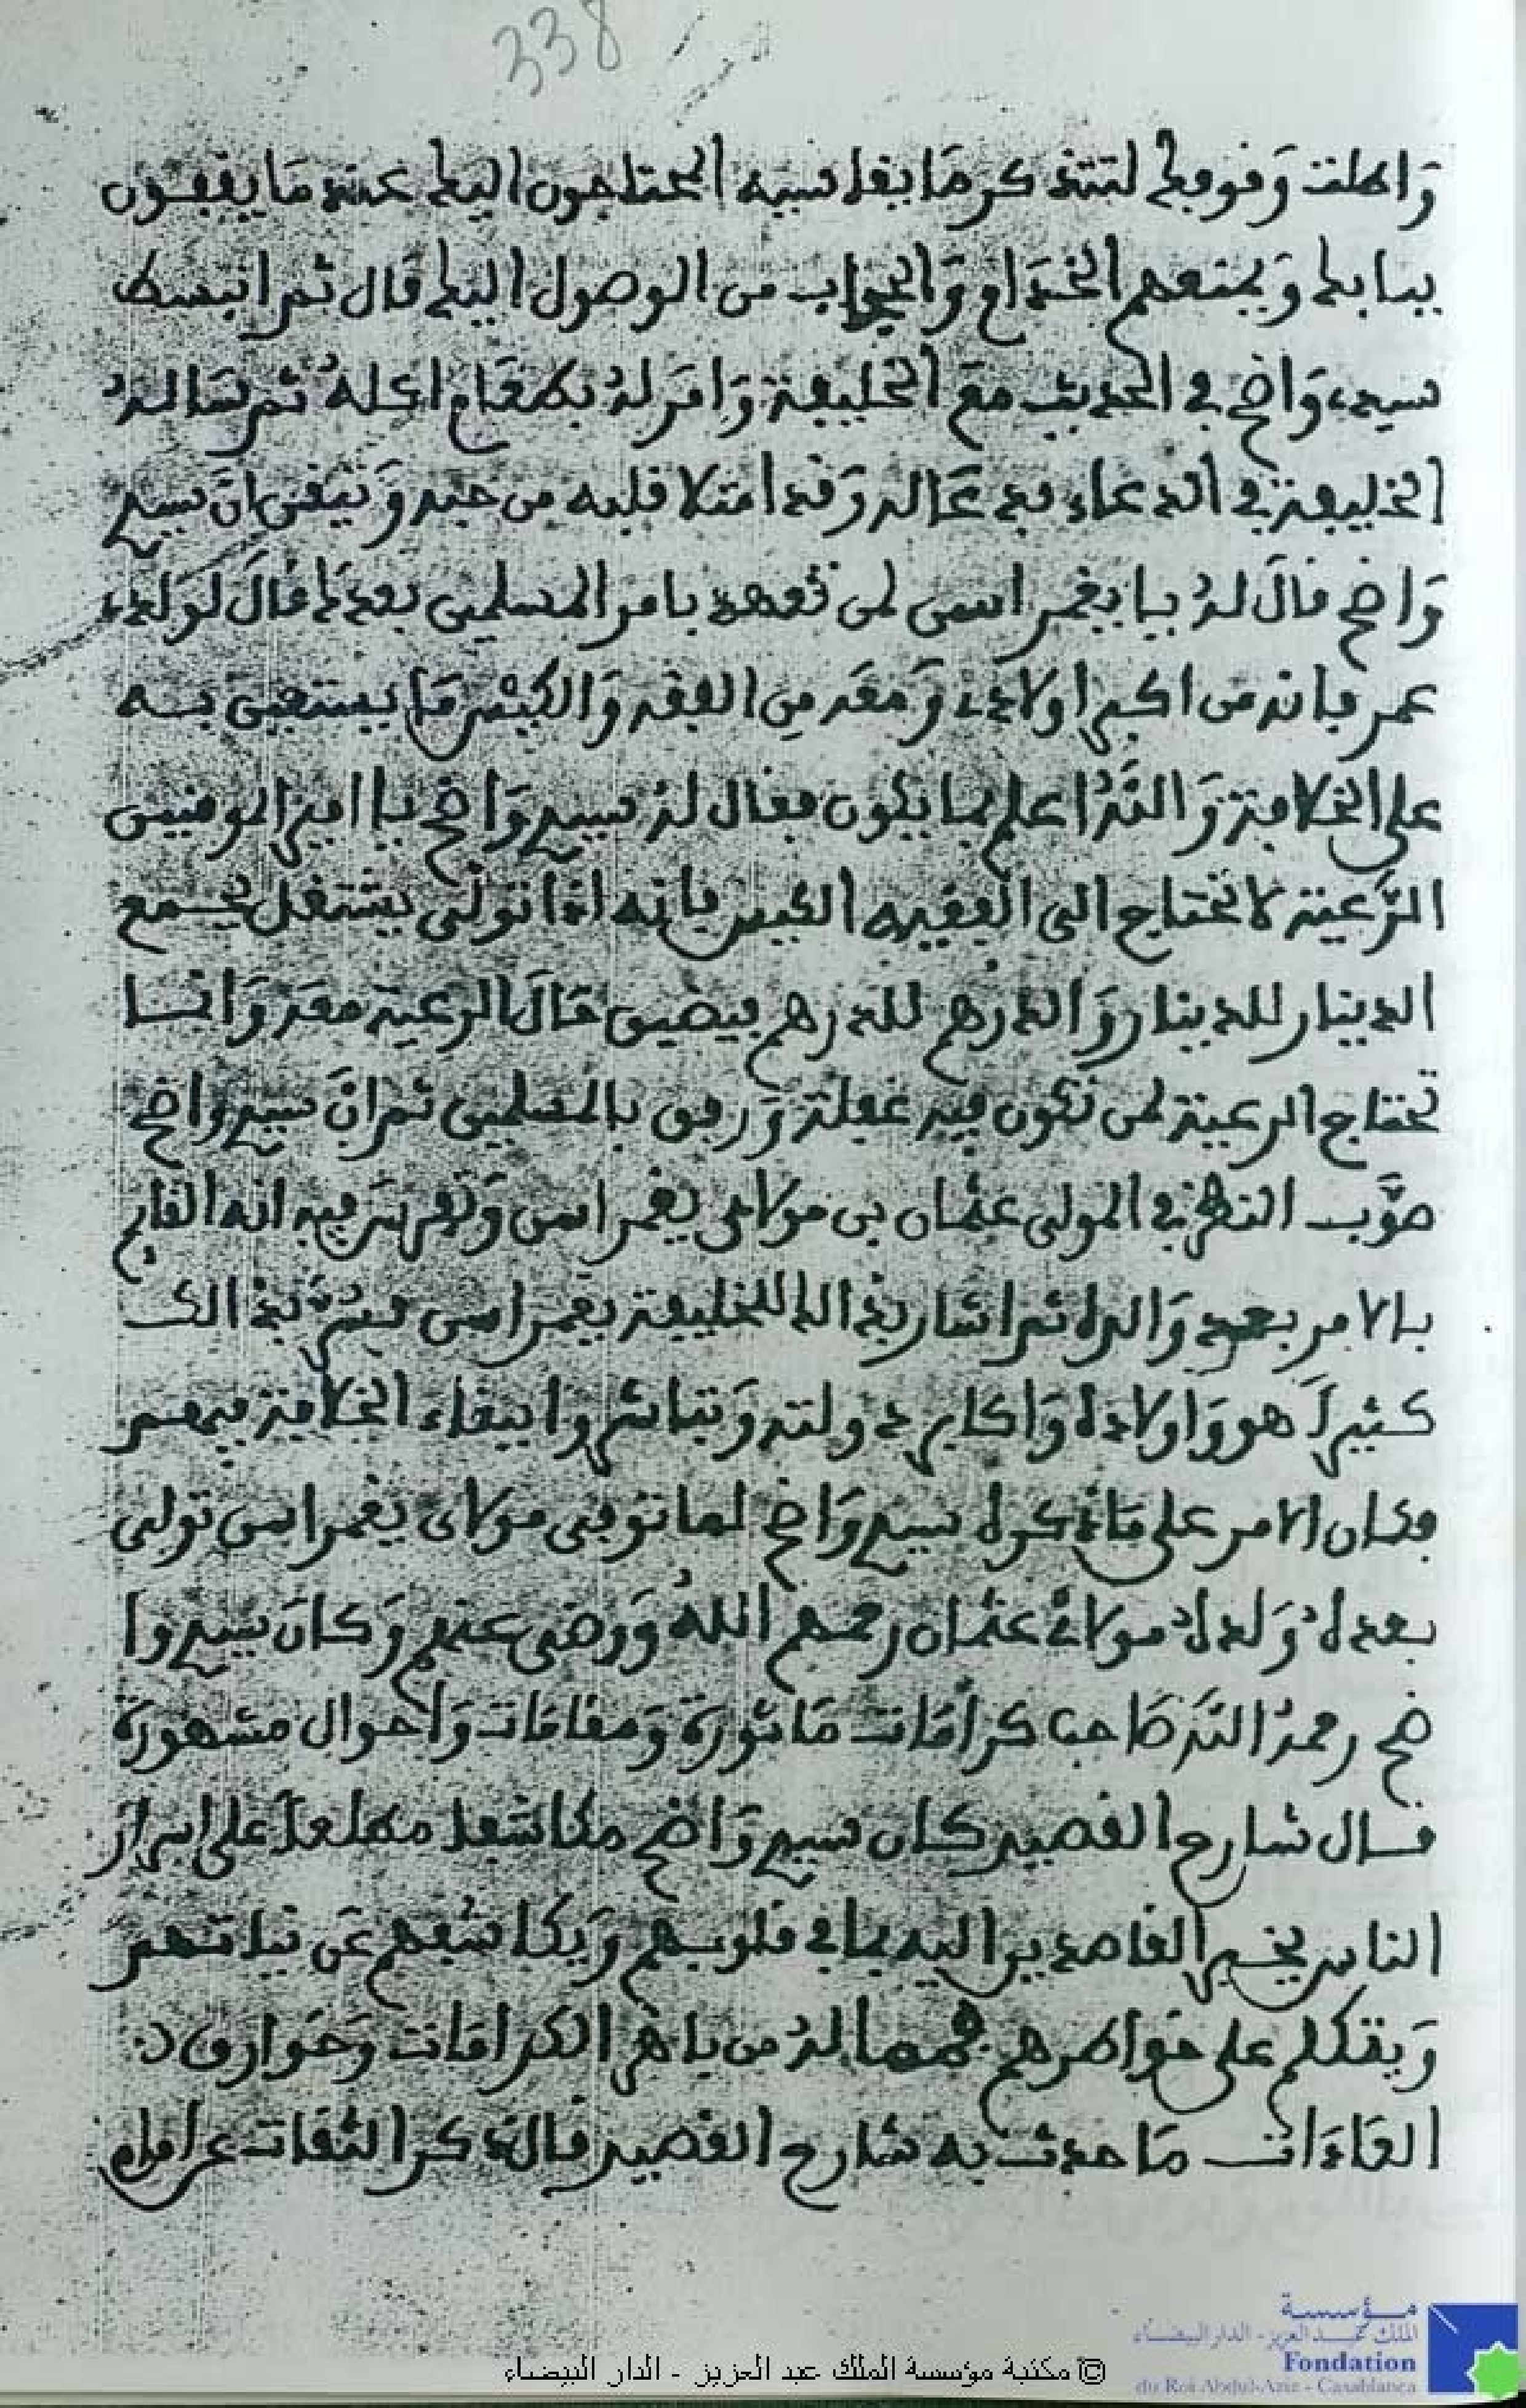 338
وَاطلت وَفوفك لتتذكر مَا يفاسيه المحتاجون اليك عند مَا يففون
ببابك وَيمنعهم الخدام وَالحجاب من الوصول اليك فَال ثم انبسط
سيدي وَاضح في الحديث معَ الخليفة وَامَر لهُ بطعَام اكلهُ ثم سَالهُ
الخليفة في الدعاء فدعَا له وَفد امتلا فلبه من حبه وَتيفن انَّ سيدي
وَاضح فالَ لهُ يا يغمراسن لمن تعهد بامر المسلمين بعدك فَالَ لولدي
عمر فانه من اكبر اولادي وَمعَه من الفقه وَالكبر مَا يستعين به
على الخلافة وَاللهُ اعلم بما يكون ففال لهُ سيدي وَاضح يا امير المومنين
الرَّعية لا تحتاج الى الففيه الكبير فانه اذا تولى يشتغل بجمع
الدينار للدينار وَالدرهم للدرهم فيضيق حَالَ الرعية معَه وَانما
تحتاج الرعية لمن تكون فيه غفلة وَرفق بالمسلمين ثم انَّ سيدي واضح
صوَّب النظر في المولى عثمان بن مولاي يغمراسن وَتفرسَ فيه انه الفايم
بالامر بعد وَالده ثم اشار بذالك للخليفة يغمراسن فسُرَّ بذالك
كثيراً هو وَاولاده وَاكابر دولته وَتباشروا ببفاء الخلافة فيهم
فكان الامر على مَا ذكره سيدي وَاضح لما توفى مولاى يغمراسن تولى
بعدهُ وَلدهُ مولاىْ عثمان رحمهم اللهُ وَرضى عنهم وَكانَ سيدي وا
ضح رحمهُ اللهَ صَاحب كرامَات مَاثورة وَمفامَات وَاحوال مشهورة
فال شارح الفصيدة كان سيدي وَاضح مكاشفا مطلعاً على اسرار
الناس يخبر الفاصدين اليه بما في فلوبهم وَيكاشفهم عَن نياتهم
وَيتكلم على خواطرهم فمما لهُ من باهر الكرامَات وَخوارق
العَادَات مَا حدث به شارح الفصيدة فال ذكر الثفات عن
© مكتبة مؤسسة الملك عبد العزيز - الدار البيضاء
مؤسسة
الملك عبد العزيز - الدار البيضاء
Fondation
du Roi Abdul-Aziz - Casablanca